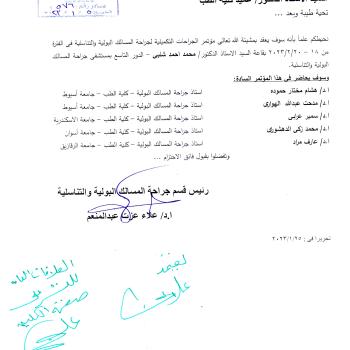 تحية طيبة وبعد ...
نحيطكم علما بأنه سوف يعقد بمشيئة الله تعالي مؤتمر الجراحات التكميلية لجراحة المسالك البولية والتناسلية في الفترة
من ١٨ – ٢٠٢٣/٢/٢٠ بقاعة السيد الاستاذ الدكتور/ محمد احمد شلبي – الدور التاسع بمستشفي جراحة المسالك
البولية والتناسلية.
وسوف يحاضر في هذا المؤتمر السادة:
ا.د/ هشام مختار حموده استاذ جراحة المسالك البولية – كلية الطب – جامعة أسيوط
ا.د/ مدحت عبدالله الهواري استاذ جراحة المسالك البولية – كلية الطب – جامعة أسيوط
ا.د/ سمير غرابي استاذ جراحة المسالك البولية – كلية الطب – جامعة الاسكندرية
ا.د/ محمد زكي الدهشوري استاذ جراحة المسالك البولية – كلية الطب – جامعة أسوان
ا.د/ عارف مراد استاذ جراحة المسالك البولية – كلية الطب – جامعة الزقازيق
وتفضلوا بقبول فائق الاحترام ...
رئيس قسم جراحة المسالك البولية والتناسلية
ا.د/ علاء عزت عبدالمنعم
تحريرا في : ٢٠٢٣/١/٢٥